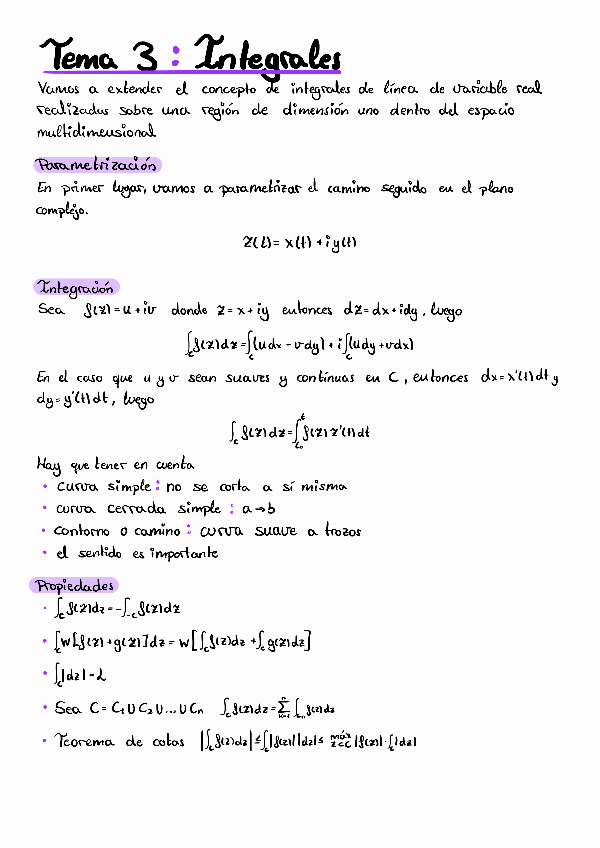 Tema 3 : Integrales
Vamos a extender el concepto de integrales de línea de variable real
realizadas sobre una región de dimensión uno dentro del espacio
multidimensional
Parametrización
En primer lugar, vamos a parametrizar el camino seguido en el plano
complejo.
z(t) = x(t) + iy(t)
Integración
Sea f(z) = u + iv donde z = x + iy entonces dz = dx + idy, luego
∫_C f(z)dz = ∫_C (udx - vdy) + i∫_C (udy + vdx)
En el caso que u y v sean suaves y contínuas en C, entonces dx = x'(t)dt y
dy = y'(t)dt, luego
∫_C f(z)dz = ∫_{t₀}^{t} f(z) z'(t)dt
Hay que tener en cuenta
• curva simple : no se corta a sí misma
• curva cerrada simple : a → b
• contorno o camino : curva suave a trozos
• el sentido es importante
Propiedades
• ∫_C f(z)dz = -∫_{-C} f(z)dz
• ∫_C w[f(z) + g(z)]dz = w[∫_C f(z)dz + ∫_C g(z)dz]
• ∫_C |dz| = L
• Sea C = C₁ ∪ C₂ ∪ ... ∪ Cₙ ∫_C f(z)dz = Σ ∫ f(z)dz
• Teorema de cotas |∫_C f(z)dz| ≤ ∫_C |f(z)||dz| ≤ máx_{z∈C} |f(z)| · ∫_C |dz|